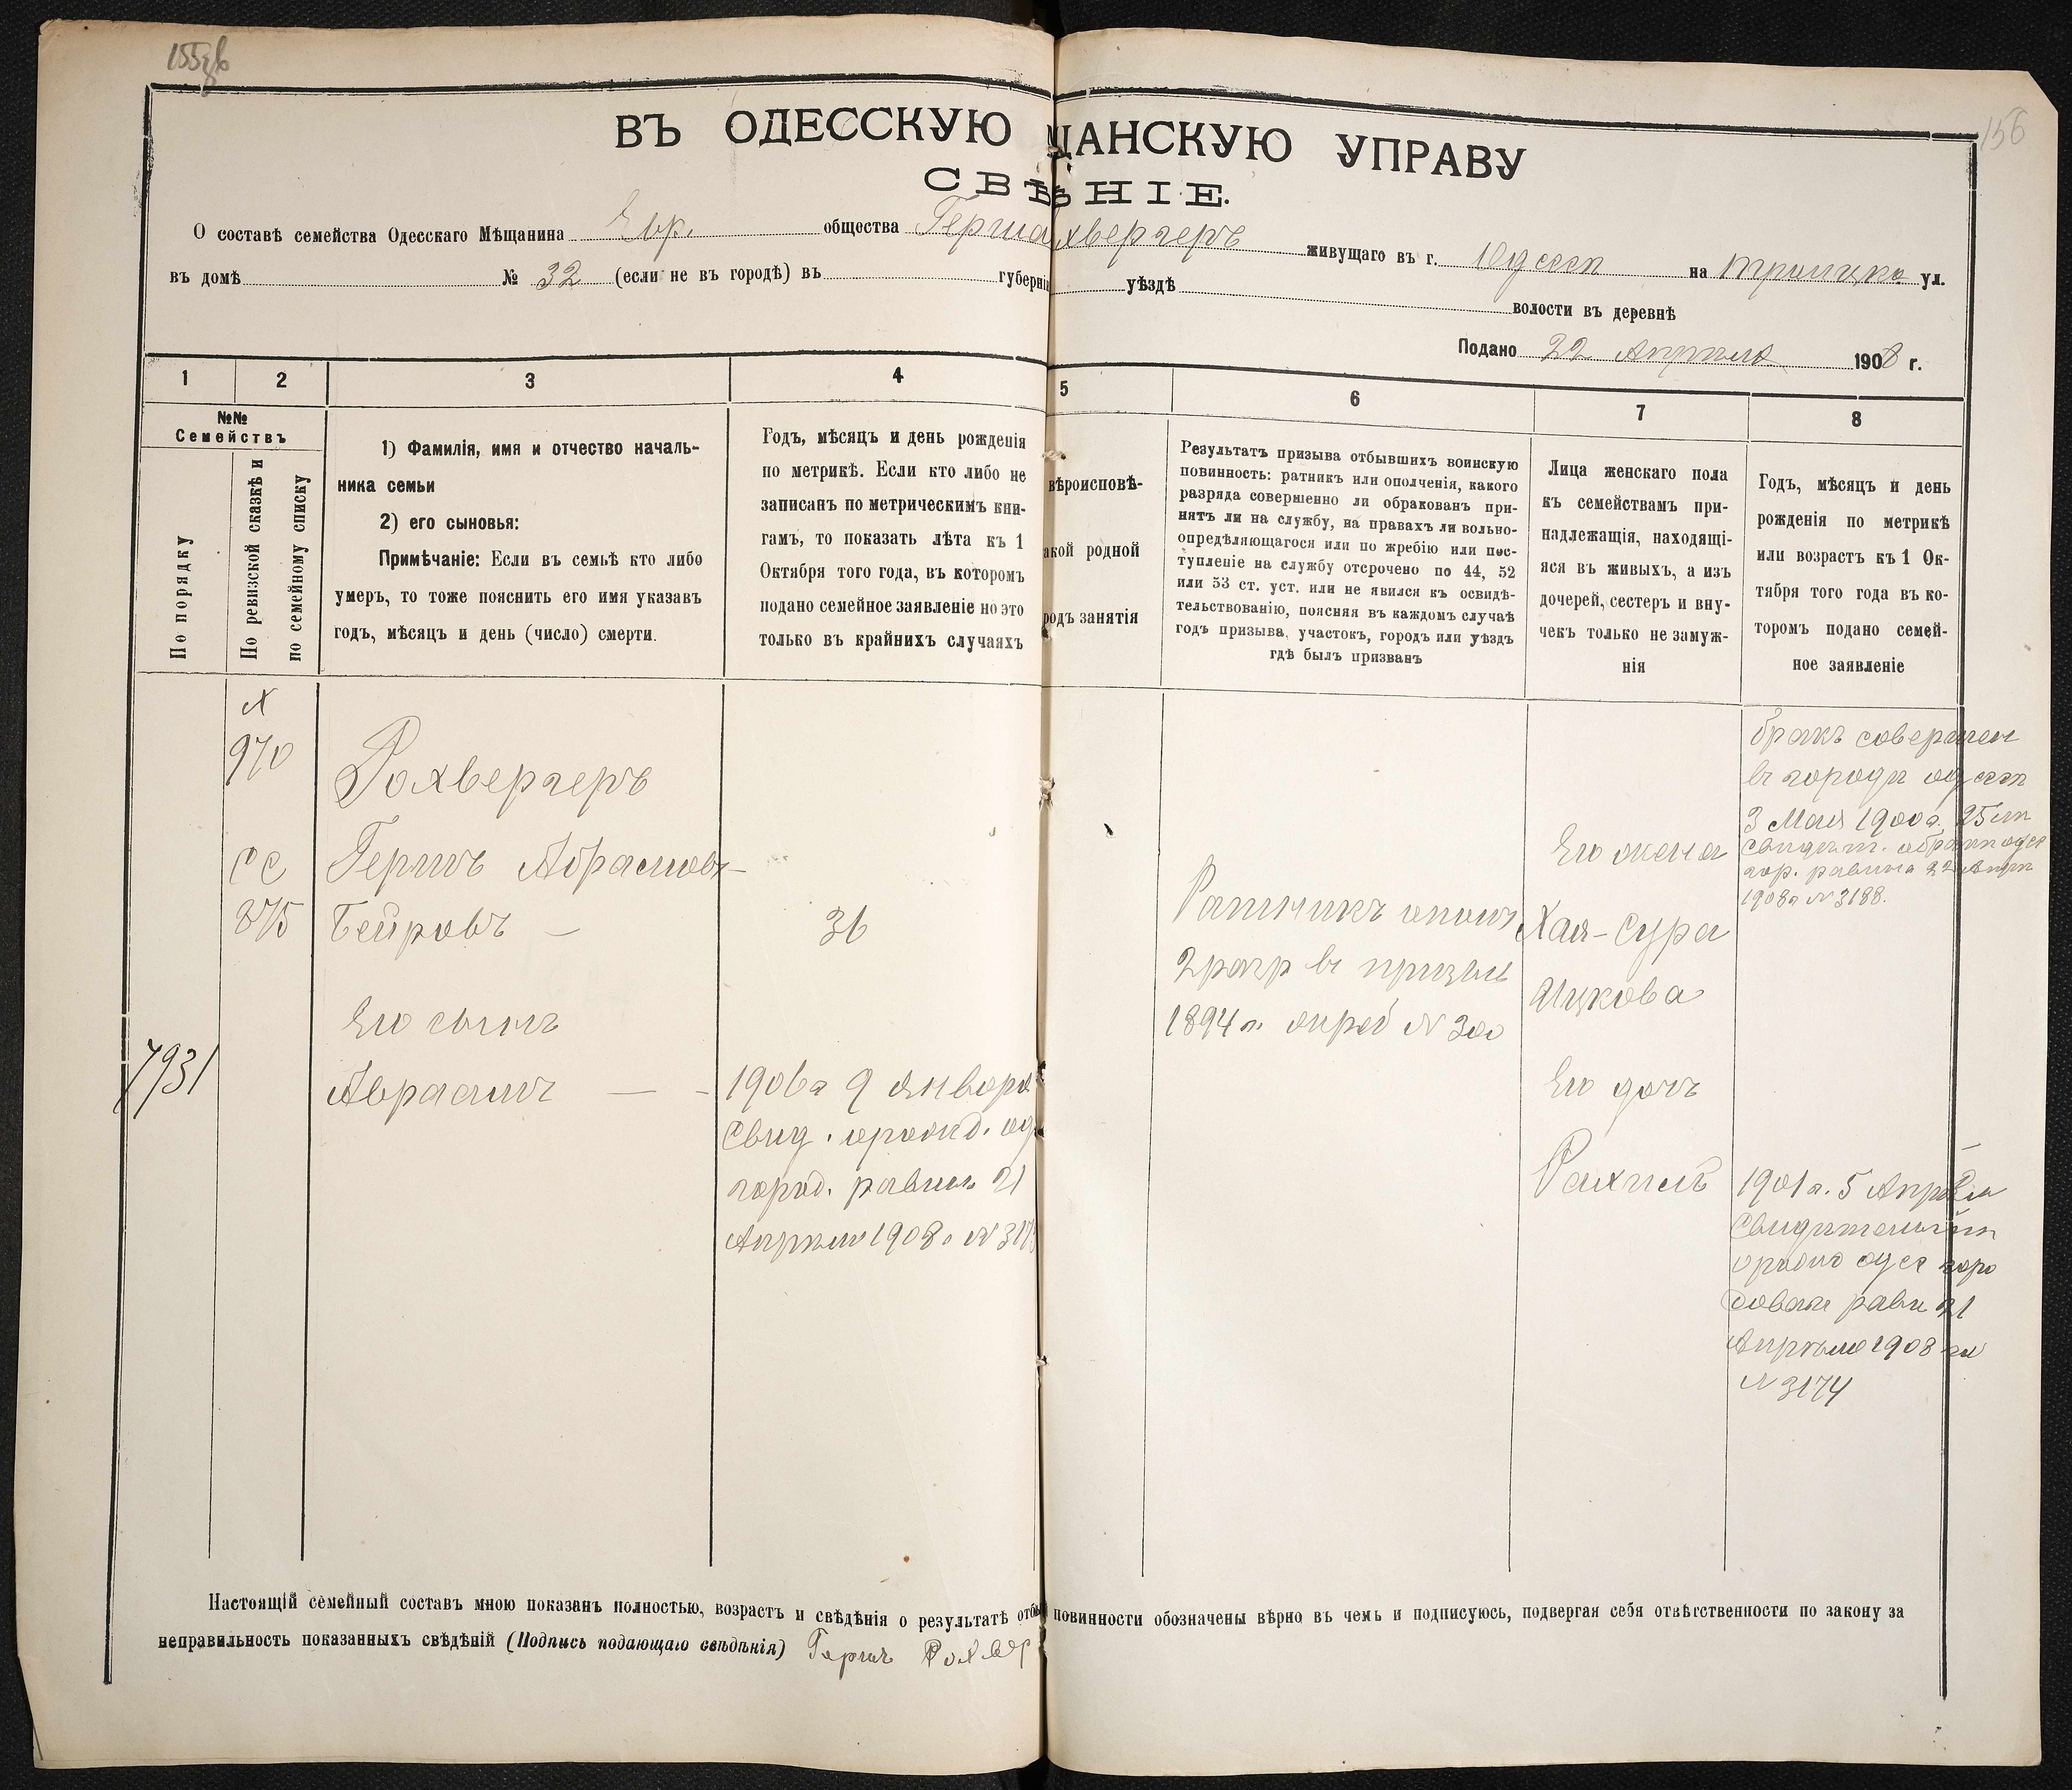 156
ВЪ ОДЕССКУЮ ЩАНСКУЮ УПРАВУ
СВѢ НІЕ.
О составѣ семейства Одесскаго Мѣщанина Евр. общества Герша хвергеръ живущаго въ г. Одессѣ на Троицко ул.
въ домѣ № 32 (если не въ городѣ) въ губерніи уѣздѣ волости въ деревнѣ
Подано 22 Апрѣля 1908 г.
1 2 3 4 5 6 7 8
№№
Семействъ
По порядку
По ревизской сказкѣ и
по семейному списку
1) Фамилія, имя и отчество началь-
ника семьи
2) его сыновья:
Примѣчаніе: Если въ семьѣ кто либо
умеръ, то тоже пояснить его имя указавъ
годъ, мѣсяцъ и день (число) смерти.
Годъ, мѣсяцъ и день рожденія
по метрикѣ. Если кто либо не
записанъ по метрическимъ кни-
гамъ, то показать лѣта къ 1
Октября того года, въ которомъ
подано семейное заявленіе но это
только въ крайнихъ случаяхъ
вѣроисповѣ-
акой родной
родъ занятія
Результатъ призыва отбывшихъ воинскую
повинность: ратникъ или ополченія, какого
разряда совершенно ли обракованъ при-
нятъ ли на службу, на правахъ ли вольно-
опредѣляющагося или по жребію или пос-
тупленіе на службу отсрочено по 44, 52
или 53 ст. уст. или не явился къ освидѣ-
тельствованію, поясняя въ каждомъ случаѣ
годъ призыва, участокъ, городъ или уѣздъ
гдѣ былъ призванъ
Лица женскаго пола
къ семействамъ при-
надлежащія, находящі-
яся въ живыхъ, а изъ
дочерей, сестеръ и вну-
чекъ только не замуж-
нія
Годъ, мѣсяцъ и день
рожденія по метрикѣ
или возрастъ къ 1 Ок-
тября того года въ ко-
торомъ подано семей-
ное заявленіе
970
Рохвергеръ
Гершъ Абрамовъ —
875
Бейровъ —
36
Его сынъ
7931
Авраамъ — -
1906 г 9 января
Свид. о рожд. од
город. равин 21
Апрѣля 1908 г №
Ратникъ ополч
2 разр въ призывъ
1894 г. жреб № 300
Его жена
Хая-Сура
Ицкова
Его дочь
Рахиль
бракъ совершен
въ городѣ одессѣ
3 Мая 1900 г. 25 лѣт
Свидѣт. о бракѣ одес
гор. равина 22 Апрѣл
1908 г № 3188.
1901 г. 5 Апрѣля
Свидѣтельств
о рожд одес горо
довое рави 21
Апрѣля 1908 г
№ 3174
Настоящій семейный составъ мною показанъ полностью, возрастъ и свѣдѣнія о результатѣ отбы повинности обозначены вѣрно въ чемъ и подписуюсь, подвергая себя отвѣтственности по закону за
неправильность показанныхъ свѣдѣній (Подпись подающаго свѣдѣнія) Гершъ Рохвер